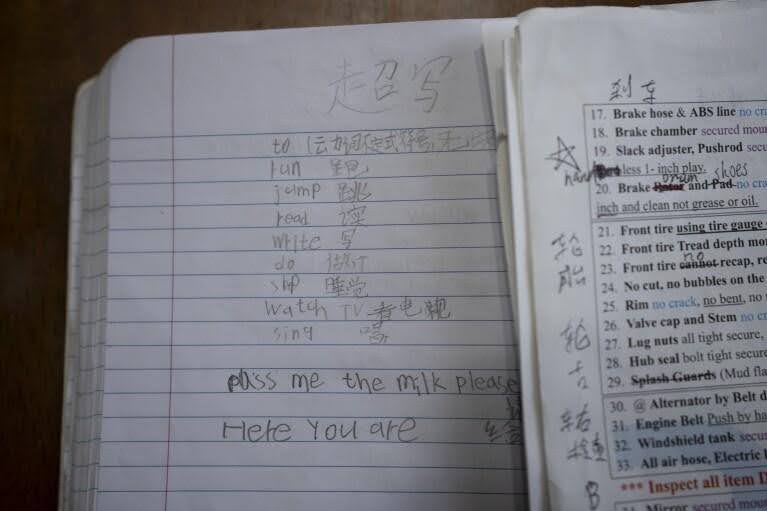 超写
to (动词不定式符号,
run 跑
jump 跳
read 读
write 写
do 做
slip 睡觉
watch TV 看电视
sing 唱
pass me the milk please
Here you are
刹车
17. Brake hose & ABS line no cra
18. Brake chamber secured mou
19. Slack adjuster, Pushrod secu
less 1- inch play.
drum shoes
20. Brake Rotor and Pad no cra
inch and clean not grease or oil.
轮胎
21. Front tire using tire gauge
22. Front tire Tread depth mor
no
23. Front tire cannot recap, re
24. No cut, no bubbles on the
25. Rim no crack, no bent, no
轮
26. Valve cap and Stem no cr
27. Lug nuts all tight secure,
28. Hub seal bolt tight secure
29. Splash Guards (Mud fla
30. @ Alternator by Belt d
31. Engine Belt Push by ha
32. Windshield tank secu
检查
33. All air hose, Electric l
B
*** Inspect all item I
34. Mirror secured mou